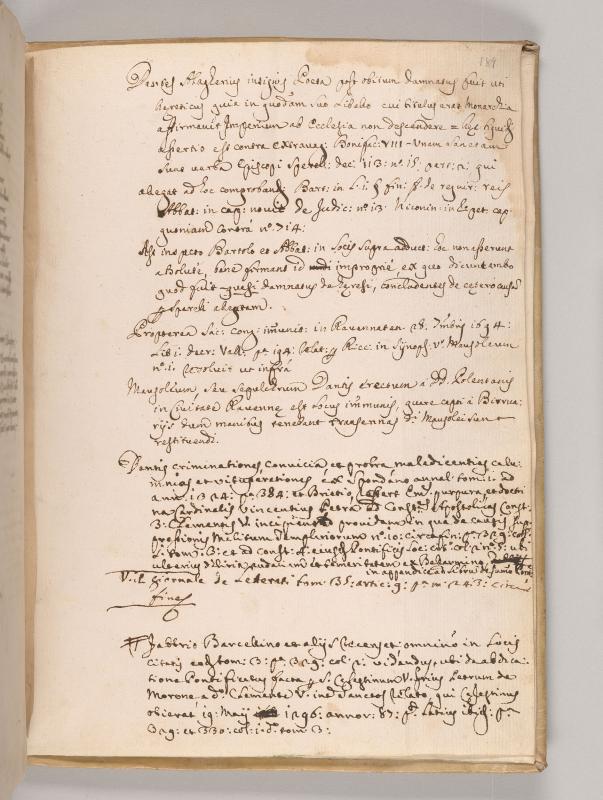 189
Dantes Alagherius insignis Poeta post obitum damnatus fuit uti
hereticus quia in quodam suo Libello cui titulus erat Monarchia
affirmavit Imperium ab Ecclesia non descendere =
assertio est contra extravag: Bonifac: VIII = Unam Sanctam
sunt verba Episcopi Sperell: dec: 113: n.° 15: part: 2: qui
allegat ad hoc comproband: Bart: in L: 1: § fin: ff. de requir: reis
Abbat: in cap: novit de Judic: n.° 13: in Repet: cap
quoniam Contra n.° 714:
Ast inspecto Bartolo et Abbat: in locis supra adduct: hoc non asserunt
absolutè, bene firmant id impropriè, ex quo dicunt ambo
quod fuit quasi damnatus de Heresi, concludentes de cetero
Sperelli allegatam.
Propterea Sac: Cong: immunit: in Ravennaten: 28: 7mbris 1694:
Lib: 1: decr: Vall: p.a 194: Relat: Ricc: in Synops: v.° Mausoleum
n.° 1: resolvit ut infra
Mausoleum, seu sepulchrum Dantis erectum a DD. Polentanis
in Civitate Ravenne est locus immunis, quare capti a Birrua:
rijs dum manibus tenebant transennas d.i Mausolei sunt
restituendi.
Dantis criminationes, convicia et probra maledicentias calu:
mnias et vituperationes ex Spondano annal: tom: 1: ad
ann: 1324: p.a 384: et Brietio, Em: purpura et doctri
na Cardinalis Vincentius Petra ad Const: Apostolicas Const:
3: Clementis V: incipien providam in qua de causis sup
pressionis Militum Templariorum n.° 10: circa fin: p.a 329: col:
1: tom: 3: et ad Const: 4: eiusd: Pontificis loc: cit: col: 2: n.° 5: ubi
ulterius deliria, audaciam et temeritatem ex Belarmino
in appendice ad Libros de sumo Pont:
V: il Giornale de Letterati tom: 35: artic: 9: p.a m: 243: circa
fines
Fabbrio Barcellino et alijs recenset: omninò in Locis
citatis eod: tom: 3: p.a 329: col: 2: vidèndus, ubi de abdica:
tione Pontificatus facta S. Celestinum V: prius Petrum de
Morone a d.° Clemente V: ind Sanctos relato, qui Celestinus
obierat 19: Maij 1296: annor: 87: p.a latius ibid: p.a
329: et 330: col: 1: d: tom: 3: